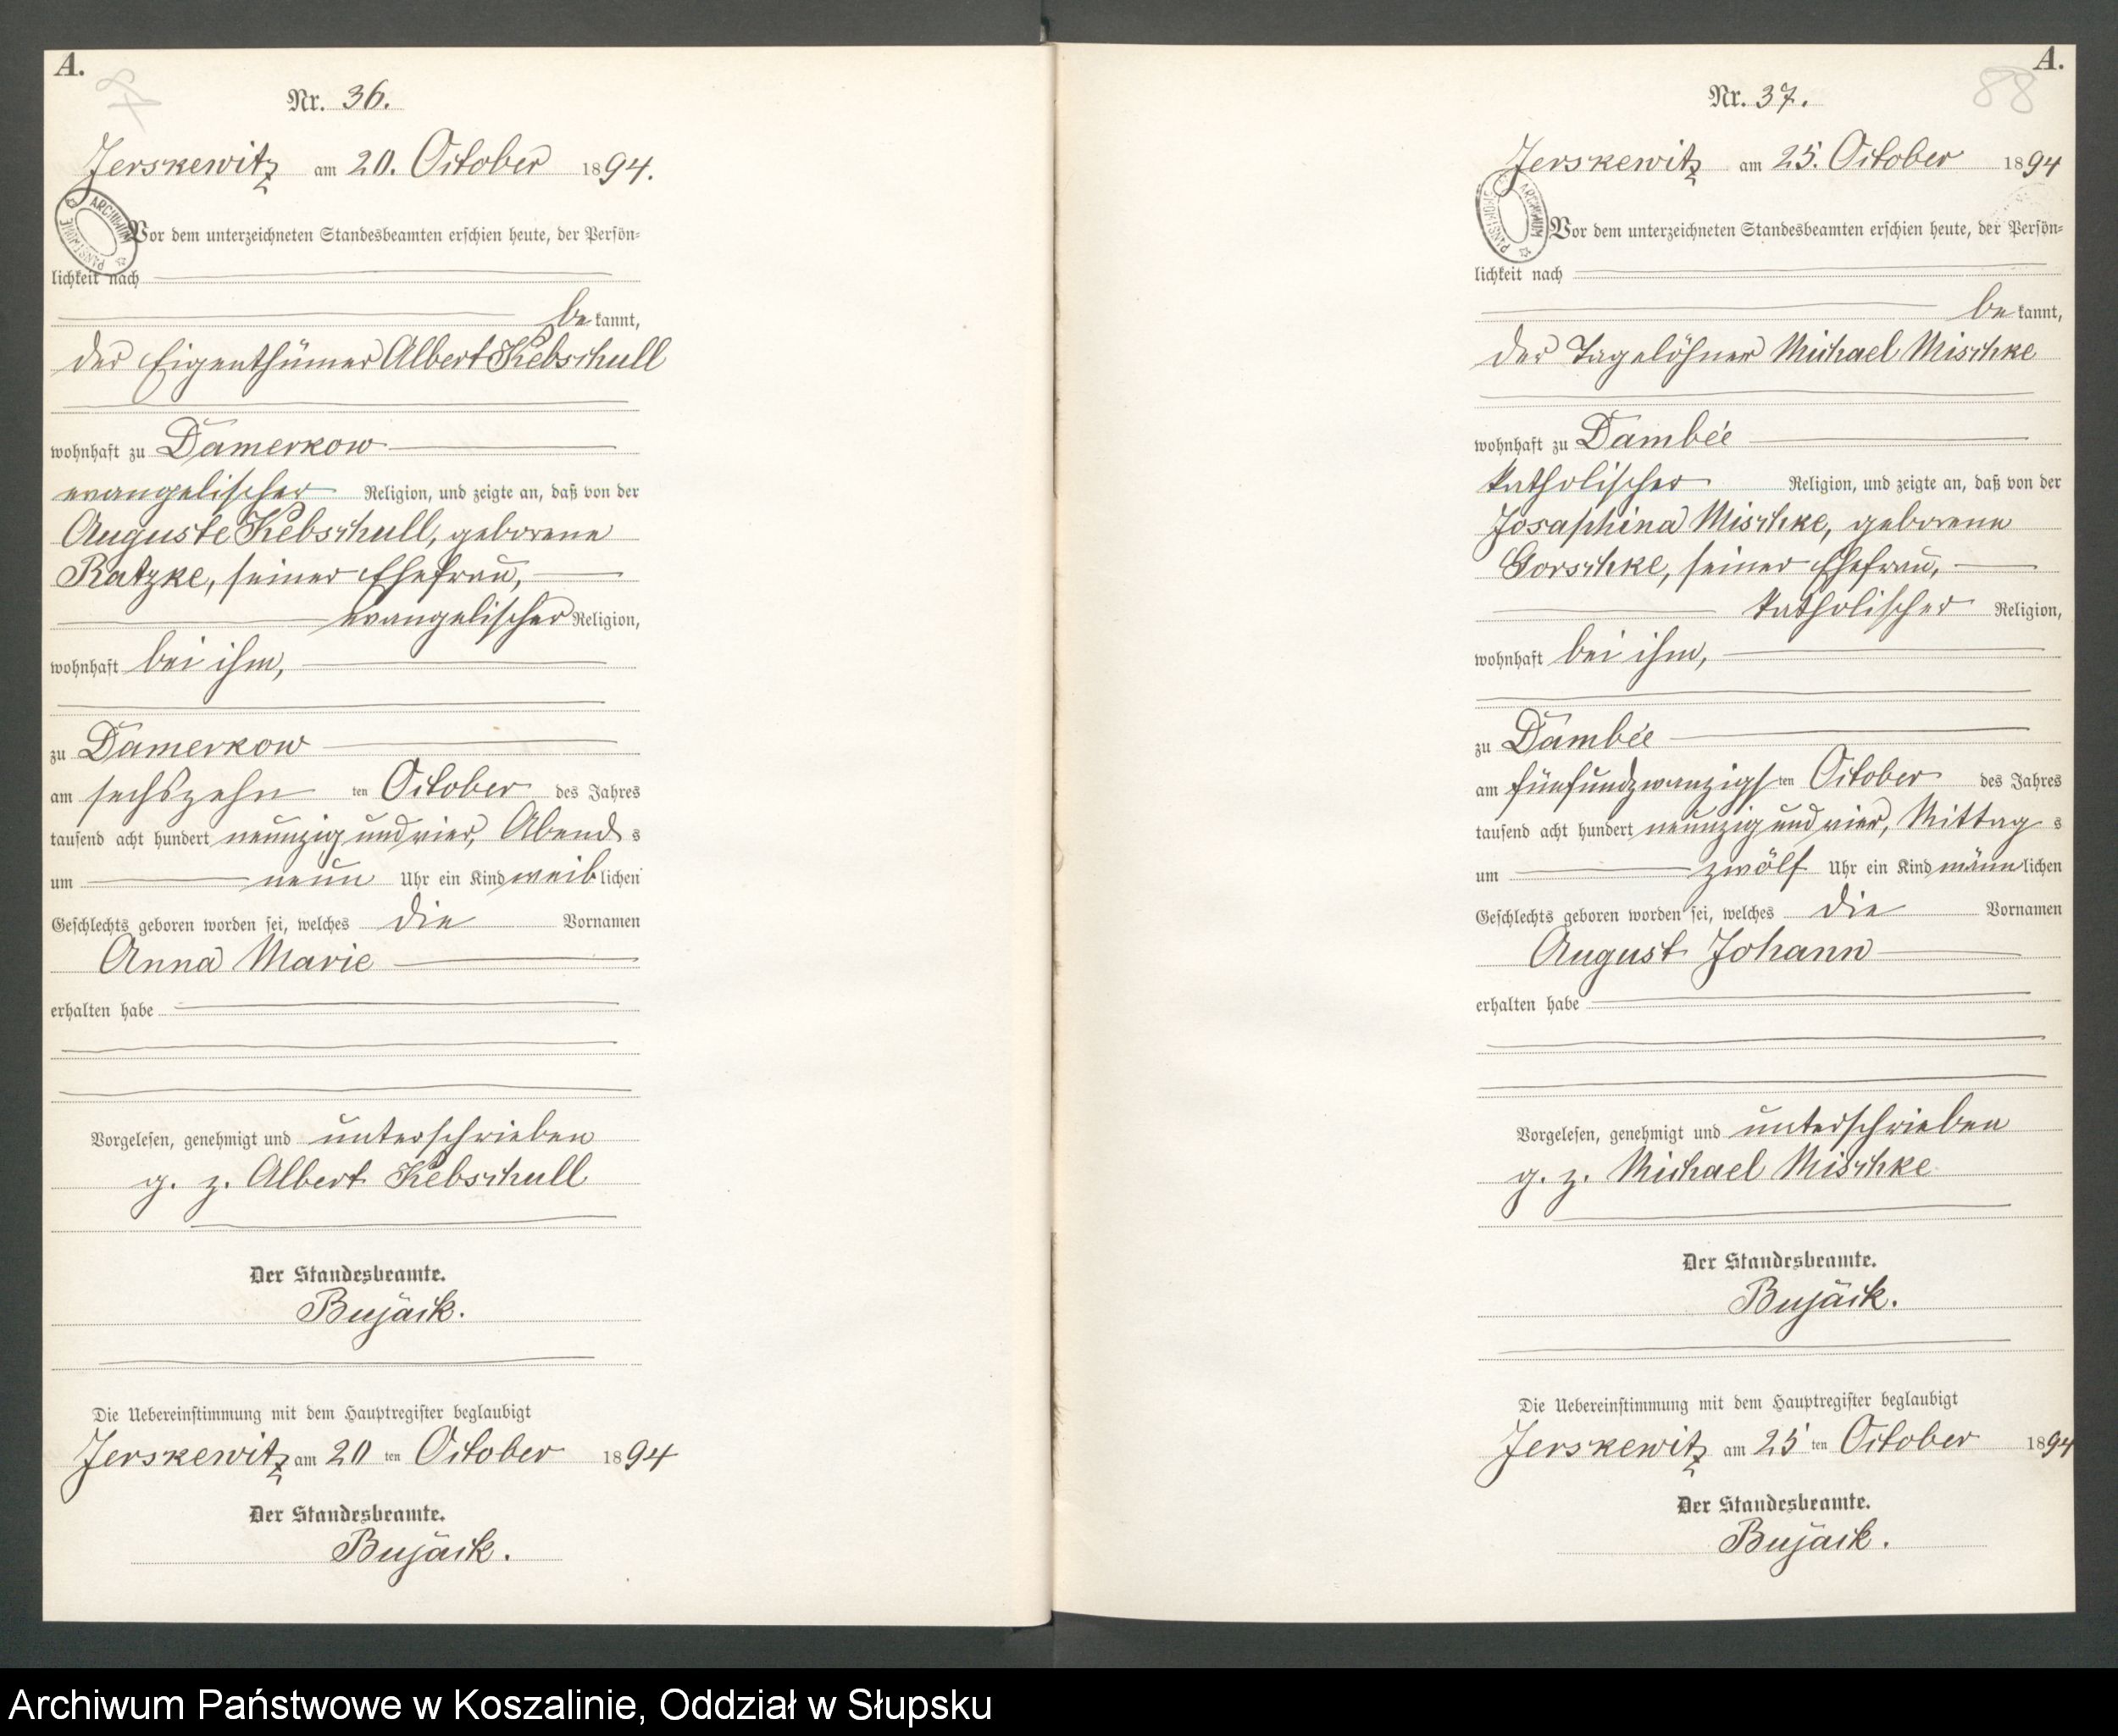 A.
Nr. 36.
Jerskewitz am 20. October 1894.
Vor dem unterzeichneten Standesbeamten erschien heute, der Persön-
lichkeit nach
be kannt,
der Eigenthümer Albert Kebschull
wohnhaft zu Damerkow
evangelischer Religion, und zeigte an, daß von der
Auguste Kebschull, geborene
Ratzke, seiner Ehefrau,
evangelischer Religion,
wohnhaft bei ihm,
zu Damerkow
am sechszehn ten October des Jahres
tausend acht hundert neunzig und vier, Abend s
um neun Uhr ein Kind weib lichen
Geschlechts geboren worden sei, welches die Vornamen
Anna Marie
erhalten habe
Vorgelesen, genehmigt und unterschrieben
g. z. Albert Kebschull
Der Standesbeamte.
Bujäck.
Die Uebereinstimmung mit dem Hauptregister beglaubigt
Jerskewitz am 20 ten October 1894
Der Standesbeamte.
Bujäck.
ARCHIWUM PAŃSTWOWE
A.
88
Nr. 37.
Jerskewitz am 25. October 1894
Vor dem unterzeichneten Standesbeamten erschien heute, der Persön-
lichkeit nach
be kannt,
der Tagelöhner Michael Mischke
wohnhaft zu Dambée
katholischer Religion, und zeigte an, daß von der
Josaphina Mischke, geborene
Gorschke, seiner Ehefrau,
katholischer Religion,
wohnhaft bei ihm,
zu Dambée
am fünfundzwanzigs ten October des Jahres
tausend acht hundert neunzig und vier, Mittag s
um zwölf Uhr ein Kind männ lichen
Geschlechts geboren worden sei, welches die Vornamen
August Johann
erhalten habe
Vorgelesen, genehmigt und unterschrieben
g. z. Michael Mischke
Der Standesbeamte.
Bujäck.
Die Uebereinstimmung mit dem Hauptregister beglaubigt
Jerskewitz am 25 ten October 1894
Der Standesbeamte.
Bujäck.
ARCHIWUM PAŃSTWOWE
Archiwum Państwowe w Koszalinie, Oddział w Słupsku